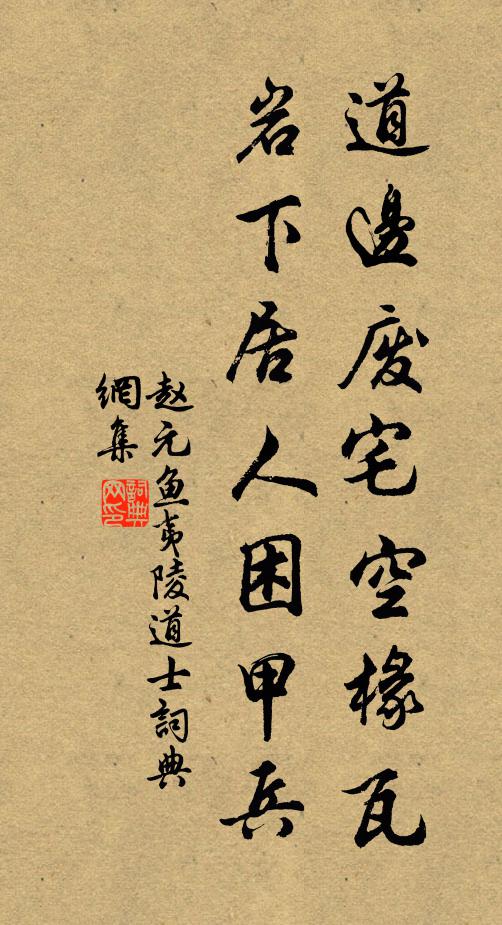 道邊废宅空椽瓦
岩下居人困甲兵
赵元鱼夷陵道士詞典
網集
詞典
网印